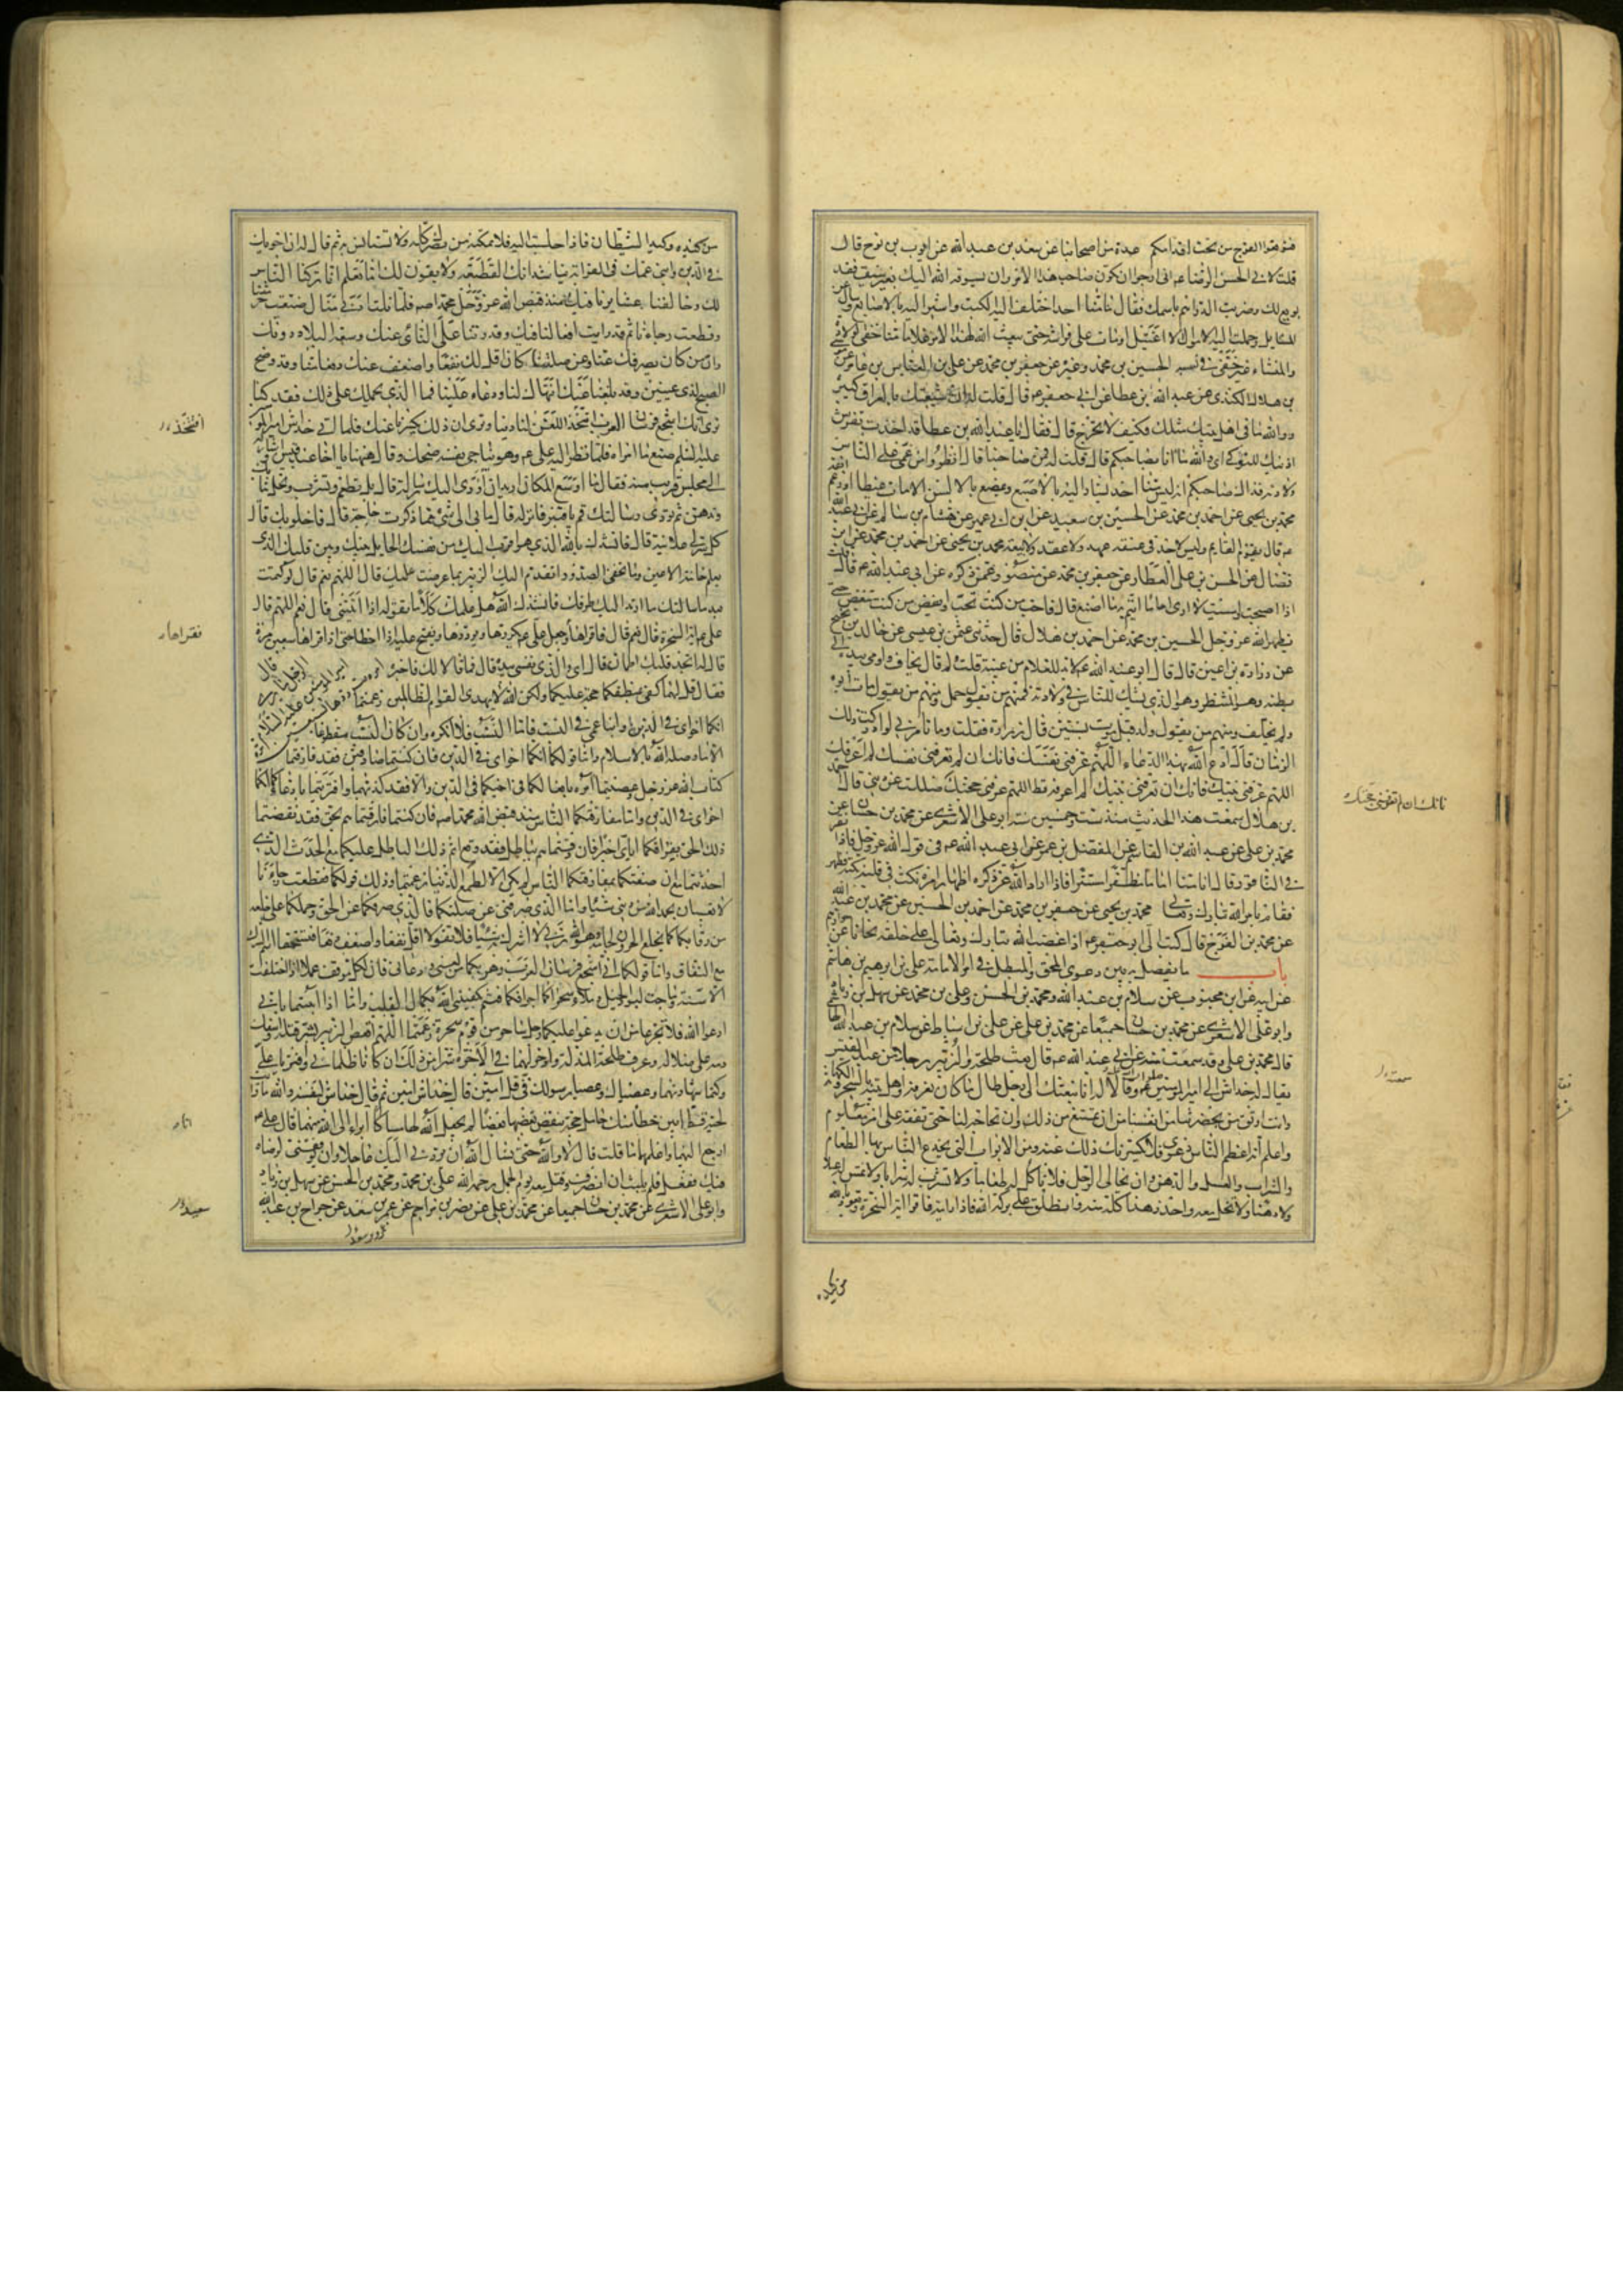 فتوقعوا الفرج من تحت اقدامكم عدة من اصحابنا عن سعد بن عبد الله عن ايوب بن نوح قال
قلت لابي الحسن الرضا عم اني ارجو ان تكون صاحب هذا الامر وان يسوقه الله اليك بغير سيف فقد
بويع لك وضربت الدراهم باسمك فقال ما منا احد اختلف اليه الكتب واشير اليه بالاصابع وسئل عن
المسايل وحملت اليه الاموال الا اغتيل او مات على فراشه حتى يبعث الله لهذا الامر غلاما منا خفي الولادة
والمنشاء غير خفي في نسبه الحسين بن محمد وغيره عن جعفر بن محمد عن علي بن العباس بن عامر عن
بن هلال الكندي عن عبد الله بن عطا عن ابي جعفر عم قال قلت له ان شيعتك بالعراق كثيرة
ووالله ما في اهل بيتك مثلك فكيف لا تخرج قال فقال يا عبد الله بن عطا قد اخذت تفرش
اذنيك للنوكى اي والله ما انا بصاحبكم قال قلت له فمن صاحبنا قال انظروا من عمي على الناس
ولادته فذاك صاحبكم انه ليس منا احد يشار اليه بالاصبع ويمضغ بالالسن الا مات غيظا او رغم انفه
محمد بن يحيى عن احمد بن محمد عن الحسين بن سعيد عن ابن ابي عمير عن هشام بن سالم عن ابي عبد الله
عم قال يقوم القايم وليس لاحد في عنقه عهد ولا عقد ولا بيعة محمد بن يحيى عن احمد بن محمد عن ابن
فضال عن الحسن بن علي العطار عن جعفر بن محمد عن منصور عمن ذكره عن ابي عبد الله عم قال قلت
اذا اصبحت وامسيت لا ارى اماما ائتم به ما اصنع قال فاحب من كنت تحب وابغض من كنت تبغض حتى
يظهره الله عز وجل الحسين بن محمد عن احمد بن هلال قال حدثنا عثمن بن عيسى عن خالد بن نجيح
عن زرارة بن اعين قال قال ابو عبد الله عم لا بد للغلام من غيبة قلت ولم قال يخاف واومى بيده الى
بطنه وهو المنتظر وهو الذي يشك الناس في ولادته فمنهم من يقول حمل ومنهم من يقول مات ابوه
ولم يخلف ومنهم من يقول ولد قبل موت ابيه بسنتين قال زرارة فقلت وما تامرني لو ادركت ذلك
الزمان قال ادع الله بهذا الدعاء اللهم عرفني نفسك فانك ان لم تعرفني نفسك لم اعرفك
اللهم عرفني نبيك فانك ان لم تعرفني نبيك لم اعرفه قط اللهم عرفني حجتك ضللت عن ديني قال احمد
بن هلال سمعت هذا الحديث منذ ست وخمسين سنة ابو علي الاشعري عن محمد بن حسان عن
محمد بن علي عن عبد الله بن القاسم عن المفضل بن عمر عن ابي عبد الله عم في قول الله عز وجل فاذا نقر
في الناقور قال ان منا اماما مظفرا مستترا فاذا اراد الله عز ذكره اظهار امره نكت في قلبه نكتة فظهر
فقام بامر الله تبارك وتعالى محمد بن يحيى عن جعفر بن محمد عن احمد بن الحسين عن محمد بن عبد الله
عن محمد بن الفرج قال كتب الي ابو جعفر عم اذا غضب الله تبارك وتعالى على خلقه نحانا عن جوارهم
باب ما يفصل به بين دعوى المحق والمبطل في امر الامامة علي بن ابرهيم بن هاشم
عن ابيه عن ابن محبوب عن سلام بن عبد الله ومحمد بن الحسن وعلي بن محمد عن سهل بن زياد
وابو علي الاشعري عن محمد بن حسان جميعا عن محمد بن علي عن علي بن اسباط عن سلام بن عبد الله الهاشمي
قال محمد بن علي وقد سمعته منه عن ابي عبد الله عم قال بعث طلحة والزبير رجلا من عبد القيس
يقال له خداش الى امير المؤمنين صلوات الله عليه وقالا له انا نبعثك الى رجل طال ما كنا نعرفه واهل بيته بالسحر والكهانة
وانت اوثق من بحضرتنا من انفسنا من ان تمتنع من ذلك وان تحاجه لنا حتى تقفه على امر معلوم
واعلم انه اعظم الناس دعوى فلا يكسرنك ذلك عنه ومن الابواب التي يخدع الناس بها الطعام
والشراب والعسل والدهن وان يخالي الرجل فلا تاكل له طعاما ولا تشرب له شرابا ولا تمس له عسلا
ولا دهنا ولا تخل معه واحذر هذا كله منه وانطلق على بركة الله فاذا رايته فاقرا اية السخرة وتعوذ بالله
من كيده
فانك ان لم تعرفني حجتك
من كيده وكيد الشيطان فاذا جلست اليه فلا تمكنه من بصرك كله ولا تستانس به ثم قال له ان اخويك
في الدين وابني عمك في القرابة يناشدانك القطيعة ويقولان لك اما تعلم انا تركنا الناس
لك وخالفنا عشايرنا فيك منذ قبض الله عز وجل محمدا صم فلما نلت ادنى منال ضيعت حرمتنا
وقطعت رجاءنا ثم قد رايت افعالنا فيك وقدرتنا على الناى عنك وسعة البلاد دونك
وان من كان يصرفك عنا وعن صلتنا كان اقل لك نفعا واضعف عنك دفعا منا وقد وضح
الصبح لذي عينين وقد بلغنا عنك انتهاك لنا ودعاء علينا فما الذي يحملك على ذلك فقد كنا
نرى انك اشجع فرسان العرب اتتخذ اللعن لنا دينا وترى ان ذلك يكسرنا عنك فلما اتى خداش امير المؤمنين
عليه السلم صنع ما امراه فلما نظر اليه علي عم وهو يناجي نفسه ضحك وقال ههنا يا اخا عبد قيس واشار له
الى مجلس قريب منه فقال ما اوسع المكان اريد ان اؤدي اليك رسالة قال بل تطعم وتشرب وتحل ثيابك
وتدهن ثم تؤدي رسالتك قم يا قنبر فانزله قال ما بي الى شئ مما ذكرت حاجة قال فاخلو بك قال
كل سر لي علانية قال فانشدك بالله الذي هو اقرب اليك من نفسك الحايل بينك وبين قلبك الذي
يعلم خائنة الاعين وما تخفي الصدور اتقدم اليك الزبير بما عرضت عليك قال اللهم نعم قال لو كتمت
بعد ما سالتك ما ارتد اليك طرفك فانشدك الله هل علمك كلاما تقوله اذا اتيتني قال نعم اللهم قال
علي عم اية السخرة قال نعم قال فاقراها وجعل علي عم يكررها ويرددها ويفتح عليه اذا اخطا حتى اذا قراها سبعين مرة
فقال قل لهما كفى بمنطقكما حجة عليكما ولكن الله لا يهدي القوم الظالمين زعمتما
انكما اخواي في الدين وابنا عمي في النسب فاما النسب فلا انكره وان كان النسب مقطوعا
الا ما وصله الله بالاسلام واما قولكما انكما اخواي في الدين فان كنتما صادقين فقد فارقتما
كتاب الله عز وجل وعصيتما امره بافعالكما في اخيكما في الدين والا فقد كذبتما وافتريتما بادعائكما انكما
اخواي في الدين واما مفارقتكما الناس منذ قبض الله محمدا صم فان كنتما فارقتماهم بحق فقد نقضتما
ذلك الحق بفراقكما اياي اخيرا وان فارقتماهم بباطل فقد وقع اثم ذلك الباطل عليكما مع الحدث الذي
احدثتما مع ان صفقتكما بمفارقتكما الناس لم يكن الا لطمع الدنيا زعمتما وذلك قولكما فقطعت رجاءنا
لا تعيبان بحمد الله من ديني شيئا واما الذي صرفني عن صلتكما فالذي صرفكما عن الحق وحملكما على خلعه
مع النفاق واما قولكما اني اشجع فرسان العرب وهربكما من لعني ودعائي فان لكل موقف عملا اذا اختلفت
ادعوا الله فلا تجزعا من ان يدعو عليكما رجل ساحر من قوم سحرة زعمتما اللهم اقعص الزبير بشر قتلة واسفك
دمه على ضلالة وعرف طلحة المذلة وادخر لهما في الاخرة شرا من ذلك ان كانا ظلماني وافتريا علي
وكتما شهادتهما وعصياك وعصيا رسولك في قل امين قال خداش امين ثم قال خداش لنفسه والله ما رايت
لحية قط ابين خطا منك حامل حجة ينقض بعضها بعضا لم يجعل الله لها مساكا انا ابرا الى الله منهما قال علي عم
ارجع اليهما واعلمهما ما قلت قال لا والله حتى تسال الله ان يردني اليك عاجلا وان يوفقني لرضاه
فيك ففعل فلم يلبث ان انصرف وقتل معه يوم الجمل رحمه الله علي بن محمد ومحمد بن الحسن عن سهل بن زياد
وابو علي الاشعري عن محمد بن حسان جميعا عن محمد بن علي عن نصر بن مزاحم عن عمر بن سعد عن جراح بن عبد الله